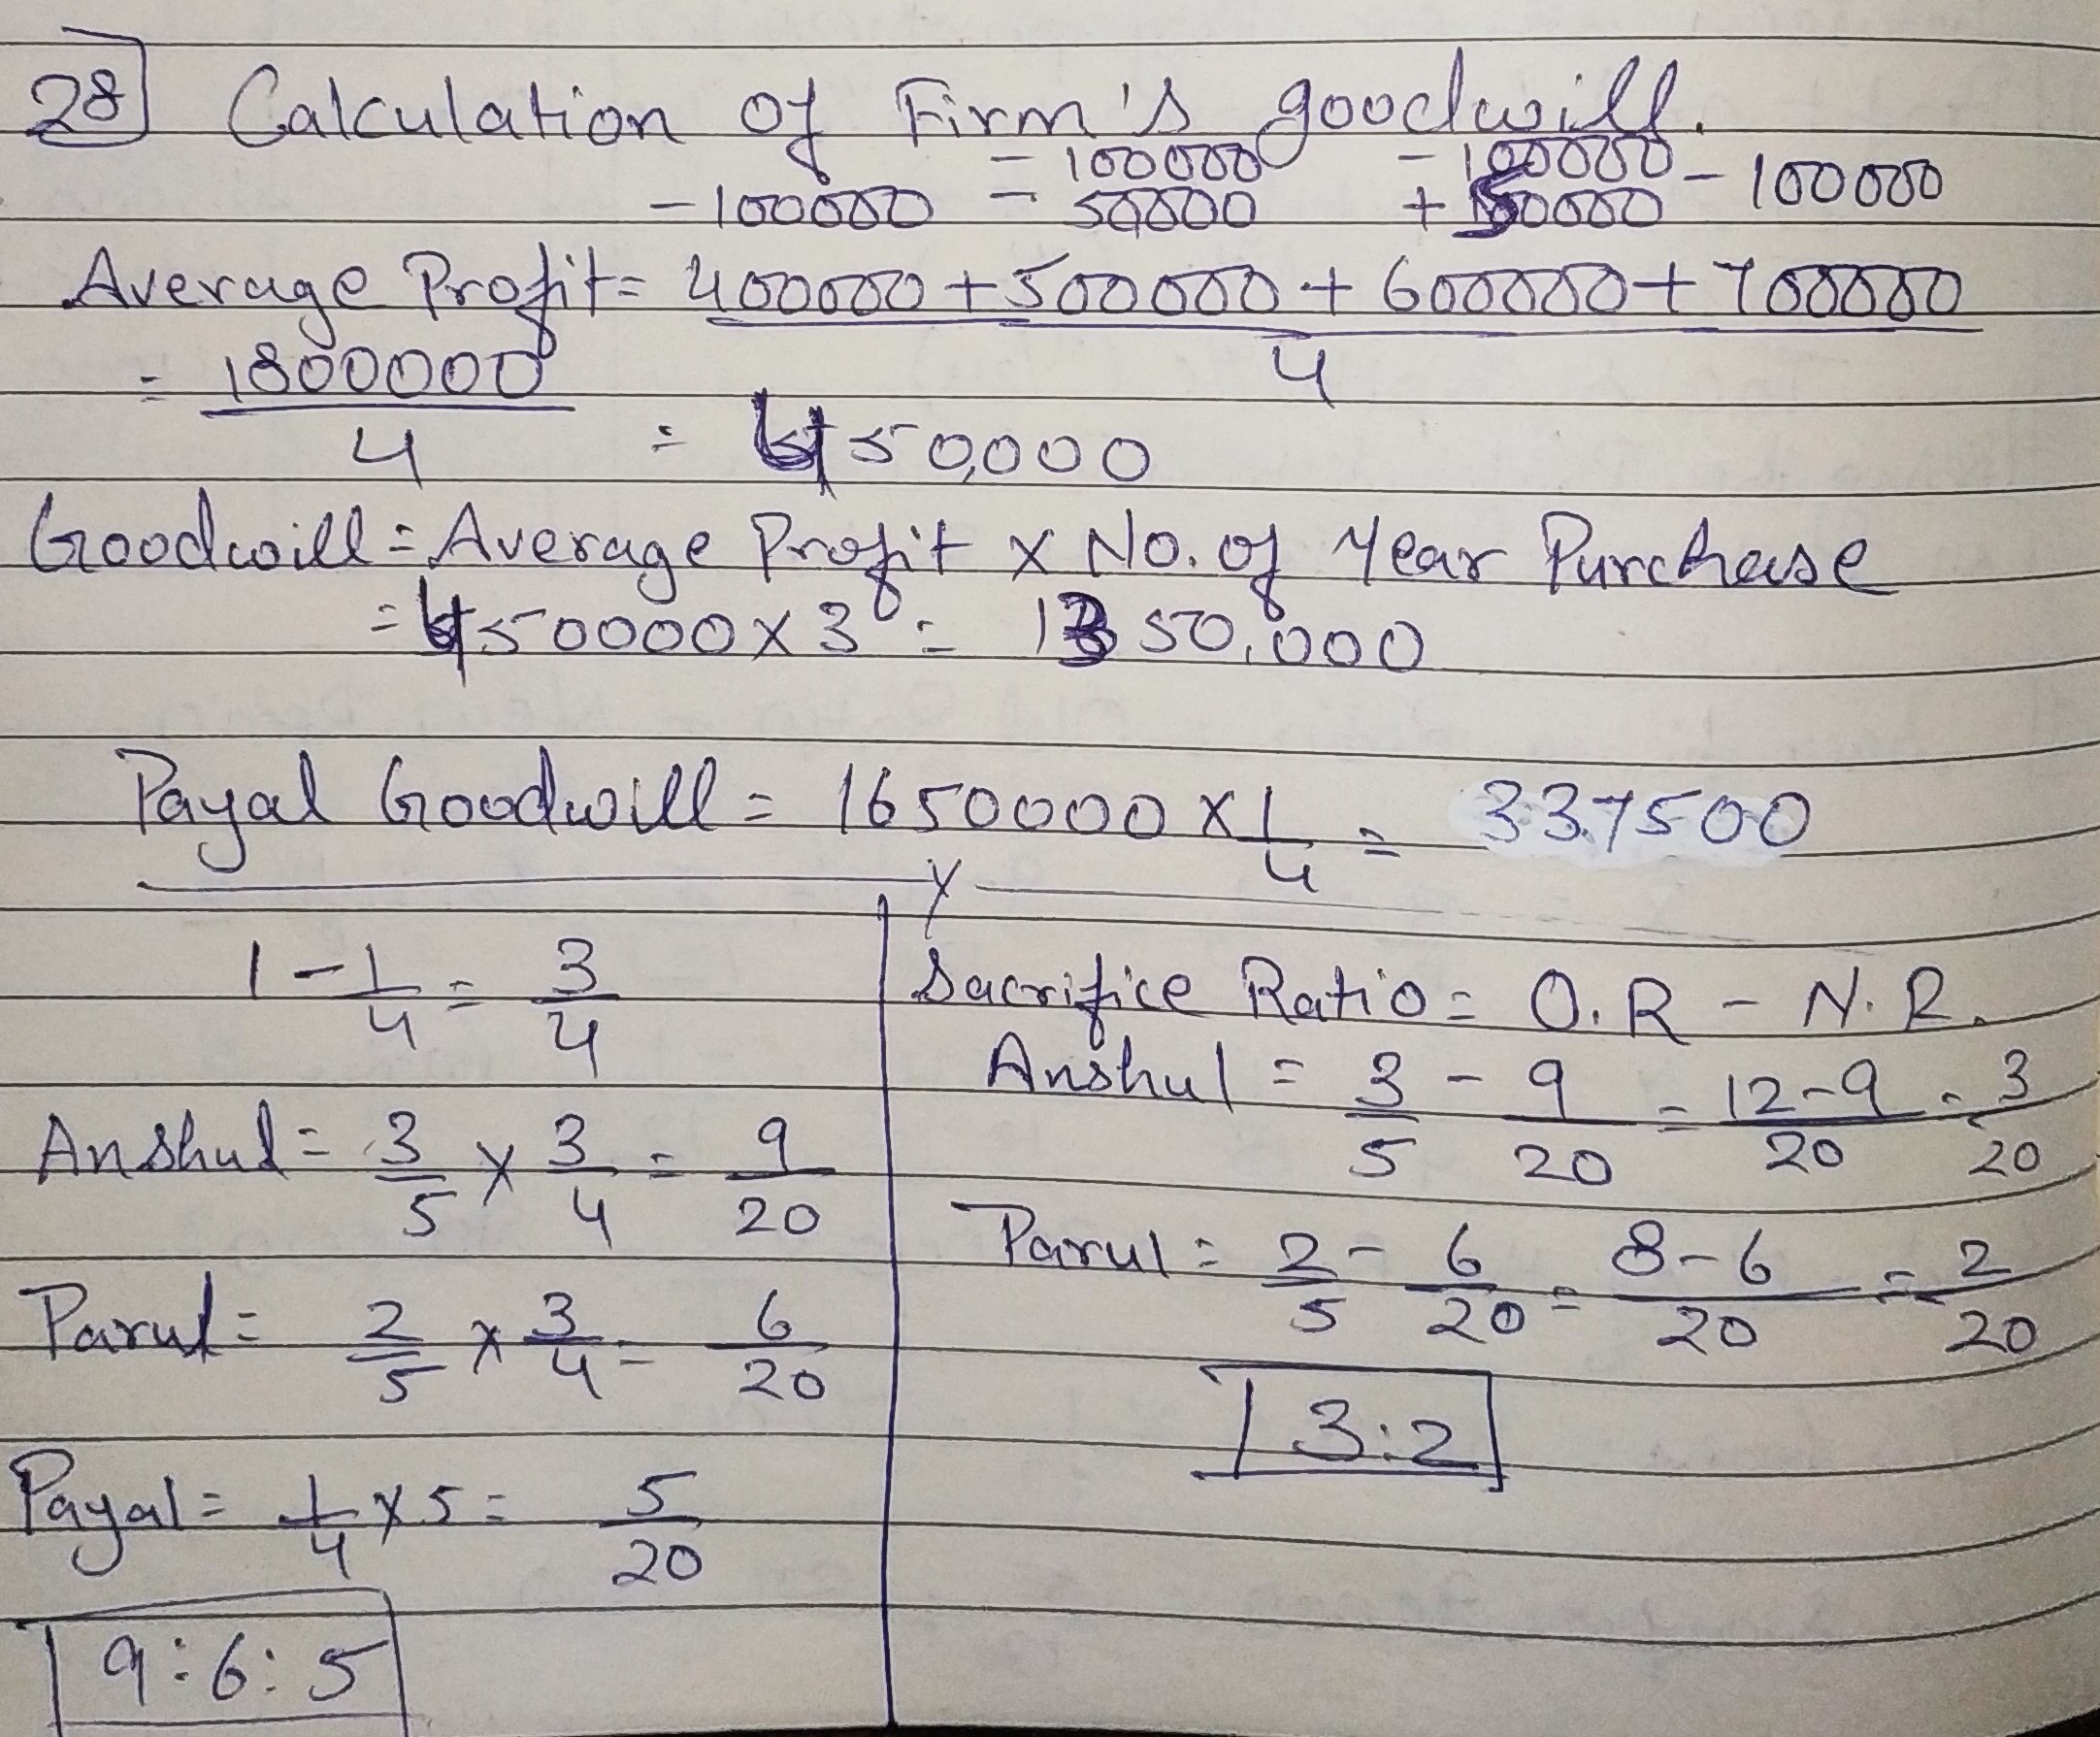 28 Calculation of Firm's goodwill.
- 100000 - 100000
- 100000 - 50000 + 50000 - 100000
Average Profit = 400000 + 500000 + 600000 + 700000
4
= 1800000
4
= 450,000
Goodwill = Average Profit x No. of Year Purchase
= 450000 x 3 = 1350,000
Payal Goodwill = 1650000 x 1/4 = 337500
x
1 - 1/4 = 3/4
Anshul = 3/5 x 3/4 = 9/20
Parul = 2/5 x 3/4 = 6/20
Payal = 1/4 x 5 = 5/20
9:6:5
Sacrifice Ratio = O.R - N.R.
Anshul = 3/5 - 9/20 = 12-9/20 = 3/20
Parul = 2/5 - 6/20 = 8-6/20 = 2/20
3:2